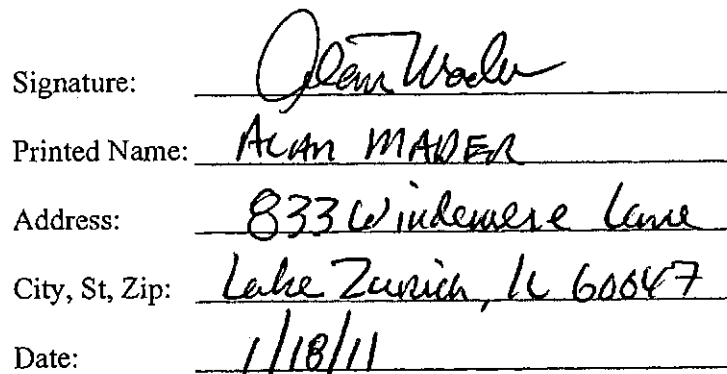 Signature: Alan Mader
Printed Name: ALAN MADER
Address: 833 Windemere Lane
City, St, Zip: Lake Zurich, IL 60047
Date: 1/18/11